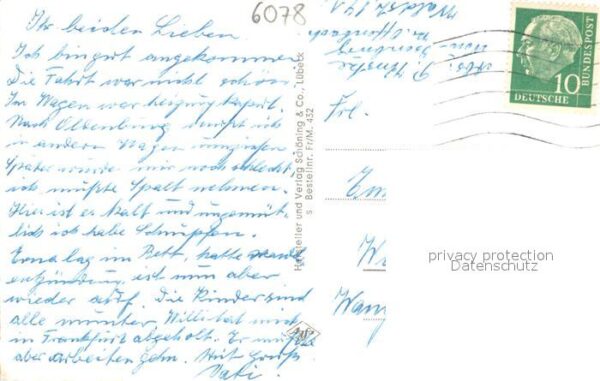 6078
Ihr beiden Lieben
Ich bin gut angekommen
Die Fahrt war nicht schön.
Im Wagen war Heizung kaput.
Nach Oldenburg mußt ich
in andern Wagen umziehen
Später wurde mir noch schlecht,
ich mußte Spalt nehmen.
Hier ist es kalt und ungemüt-
lich ich habe Schnupfen.
Erna lag im Bett, hatte
entzündung ist nun aber
wieder auf. Die Kinder sind
alle munter, Willi hat mich
in Frankfurt abgeholt. Er muß
aber arbeiten gehn. Mit Gruß
Vati.
Hersteller und Verlag Schöning & Co., Lübeck
S Bestellnr. Fr/M. 452
Abs.
Waldstr.
DEUTSCHE
BUNDESPOST
10
Frl.
Em
W
Wang
privacy protection
Datenschutz